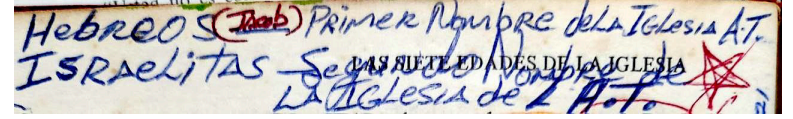 HebReOS (Jacob) PRimeR Nombre de LA Iglesia A.T.
ISRAeLitAS Segundo Nombre de
LAS SIETE EDADES DE LA IGLESIA
LA IGLesiA de L A.T.